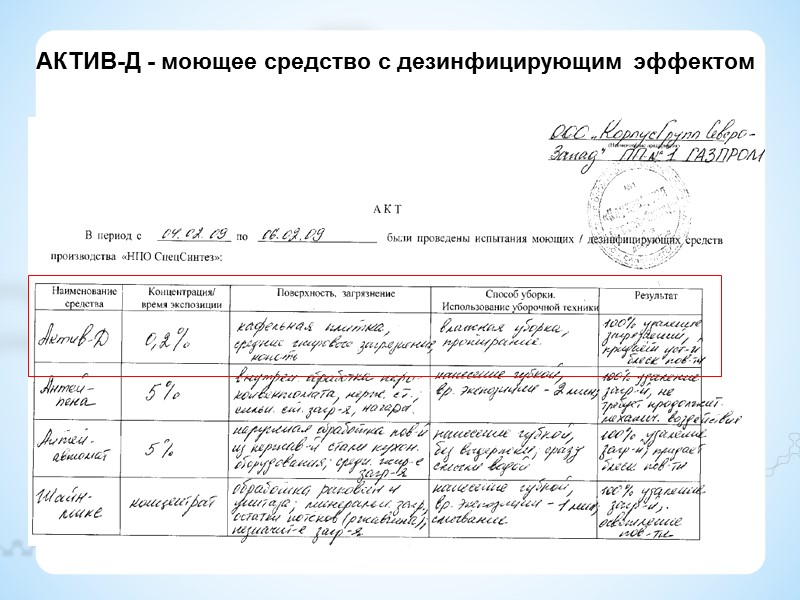 АКТИВ-Д - моющее средство с дезинфицирующим эффектом
ООО "КорпусГрупп Северо-
(Наименование предприятия)
Запад" ПП№1 ГАЗПРОМ
АКТ
В период с 04.02.09 по 06.02.09 были проведены испытания моющих / дезинфицирующих средств
производства «НПО СпецСинтез»:
Наименование средства
Концентрация/ время экспозиции
Поверхность, загрязнение
Способ уборки. Использование уборочной техники
Результат
Актив-Д
0,2%
кафельная плитка,
средние жирового загрязнения,
копоть
влажная уборка,
протирание
100% удаление
загрязнений,
блеск пов-ти
Антей-
пена
5%
внутрен. обработка паро-
конвектомата, нерж. ст.;
сильн. ст. загр-я, нагара.
нанесение губкой,
вр. экспозиции - 2 мин;
100% удаление
загр-й, не
требует продолжит.
механич. воздействия
Антей-
автомат
5%
наружная обработка пов-й
из нержав-й стали кухон.
оборудования; средн.
загр-я
нанесение губкой,
без выдержки, сразу
смыть водой
100% удаление
загр-й; придает
блеск пов-ти
Шайн-
люкс
концентрат
обработка раковин и
унитаза; минеральн. загр,
остатки потеков (ржавчина);
незначит-е загр-я
нанесение губкой,
вр. экспозиции - 1 мин;
смывание.
100% удаление
загр-й.
осветление
пов-ти